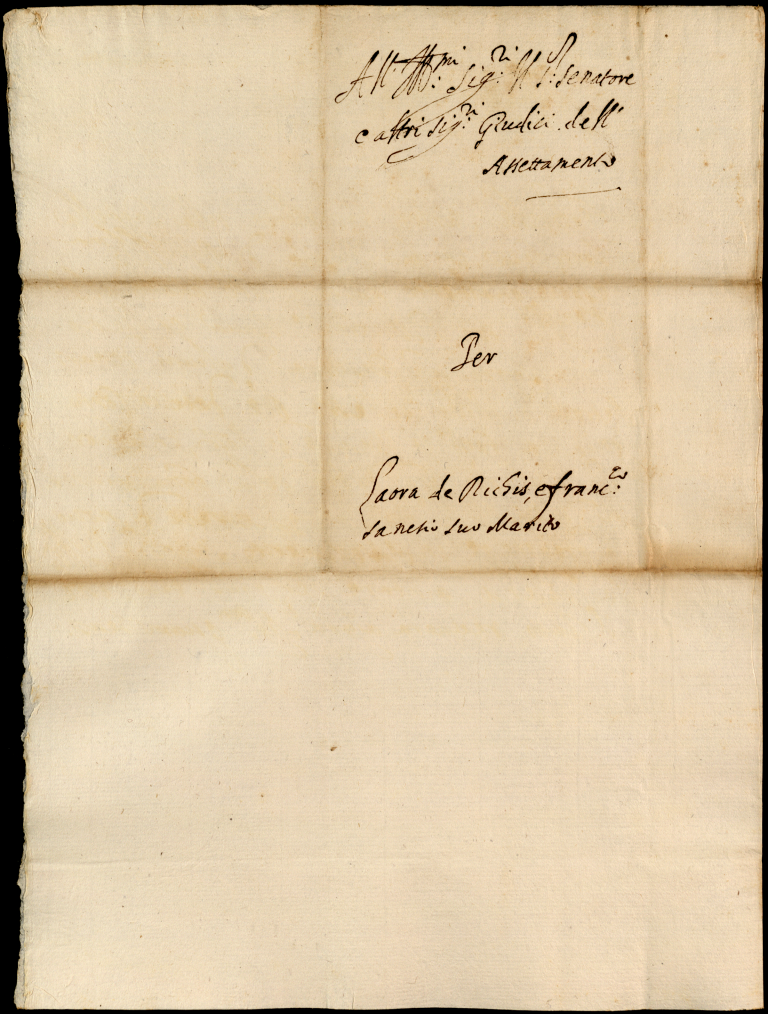 All' Ill:mi Sig:ri Il S: Senatore
e altri Sig:ri Giudici dell'
Assettamento
Per
Laora de Richis, e Franc:co
Sanesio suo Marito